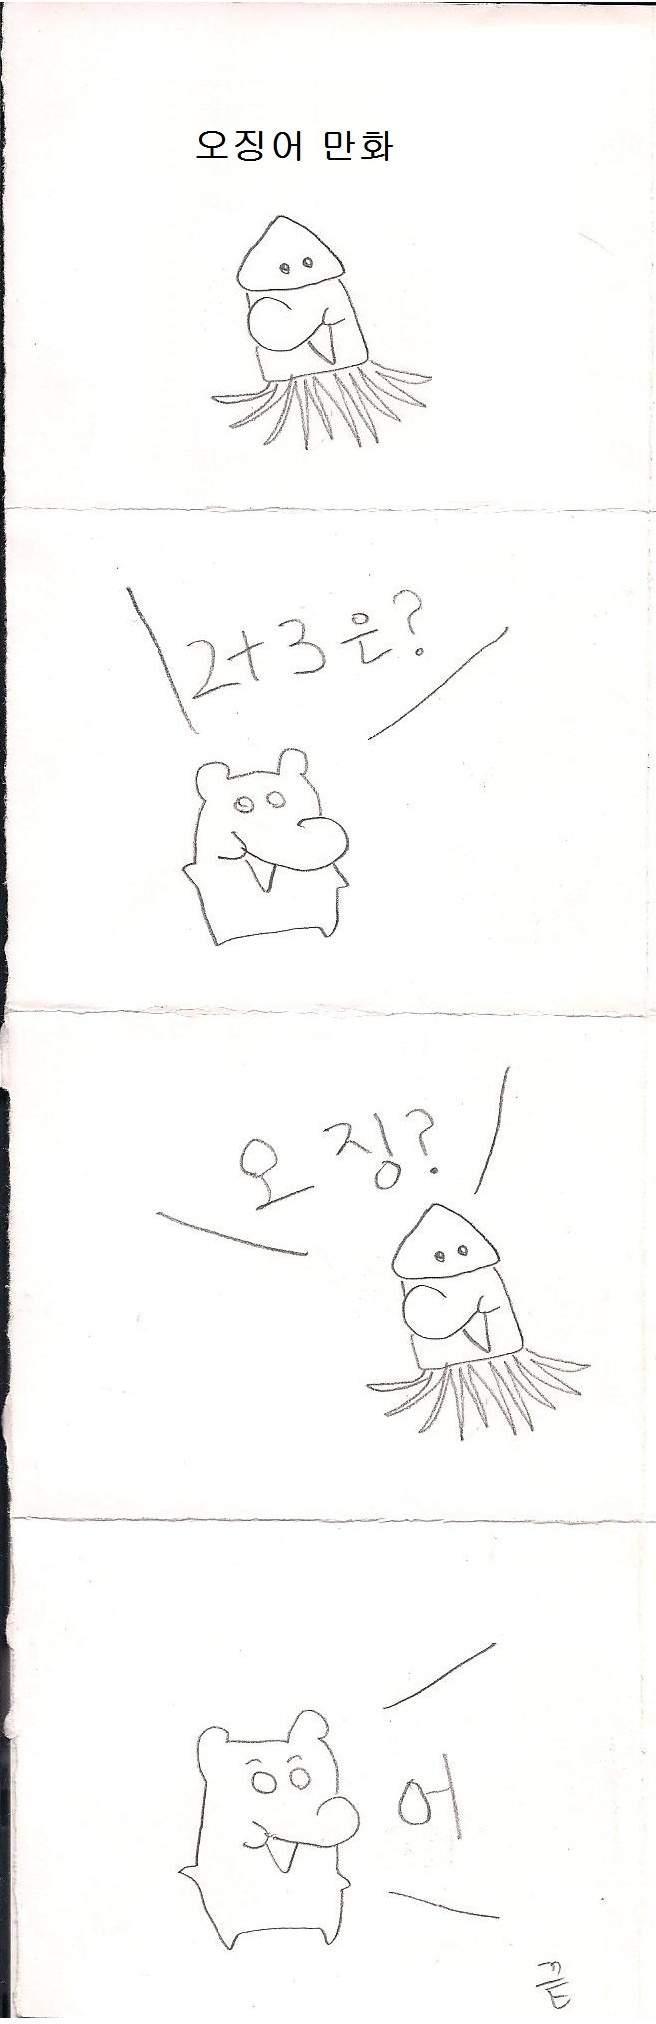 오징어 만화
2+3은?
오징?
어
끝